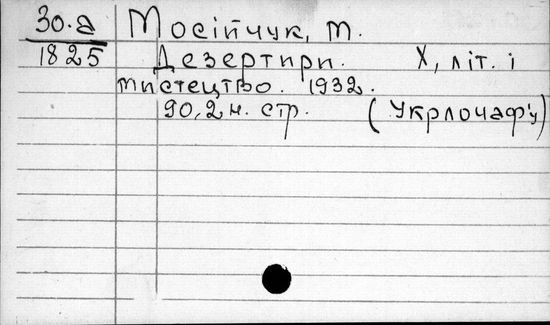 30.а Мосійчук, М.
1825 Дезертири. Х, літ. і
мистецтво. 1932.
90, 2 н. стр. (Укрлочаф'у)